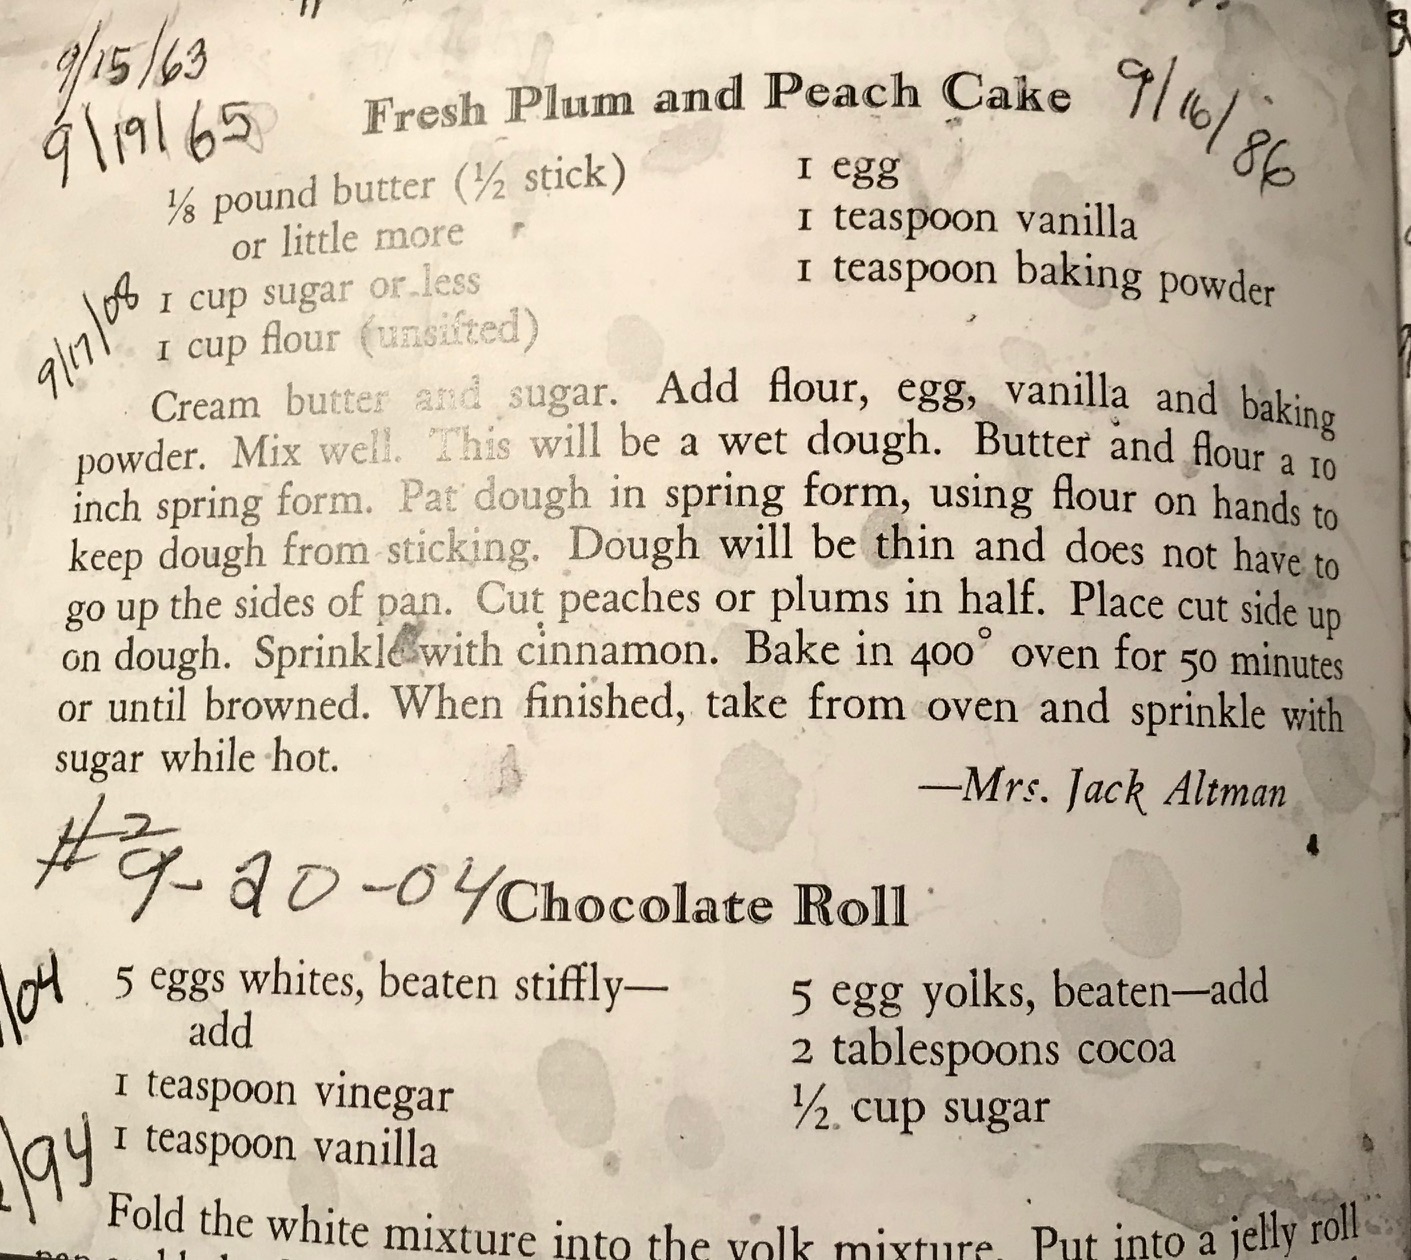 9/15/63
9/19/65
Fresh Plum and Peach Cake
9/16/86
⅛ pound butter (½ stick)
or little more
1 cup sugar or less
1 cup flour (unsifted)
9/17/08
1 egg
1 teaspoon vanilla
1 teaspoon baking powder
Cream butter and sugar. Add flour, egg, vanilla and baking
powder. Mix well. This will be a wet dough. Butter and flour a 10
inch spring form. Pat dough in spring form, using flour on hands to
keep dough from sticking. Dough will be thin and does not have to
go up the sides of pan. Cut peaches or plums in half. Place cut side up
on dough. Sprinkle with cinnamon. Bake in 400° oven for 50 minutes
or until browned. When finished, take from oven and sprinkle with
sugar while hot.
—Mrs. Jack Altman
#2
9-20-04
Chocolate Roll
/04
/94
5 eggs whites, beaten stiffly—
add
1 teaspoon vinegar
1 teaspoon vanilla
5 egg yolks, beaten—add
2 tablespoons cocoa
½ cup sugar
Fold the white mixture into the yolk mixture. Put into a jelly roll